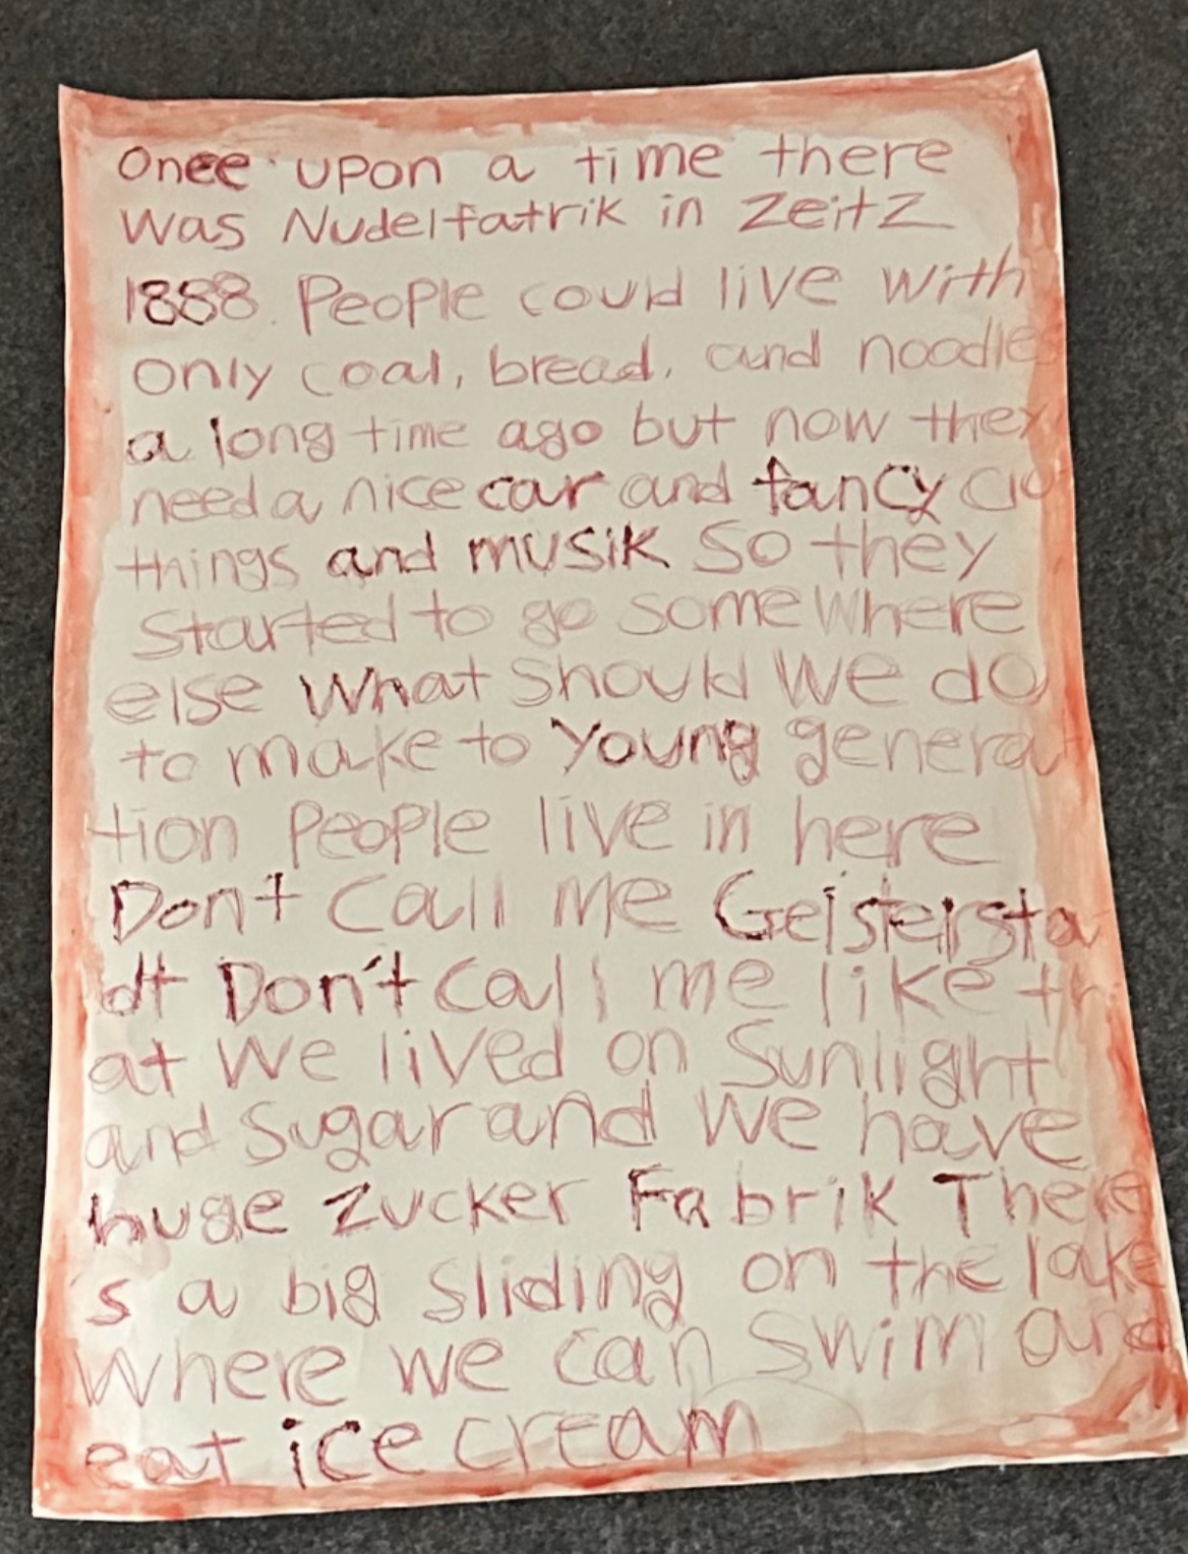 Once upon a time there
was Nudelfatrik in Zeitz
1888. People could live with
only coal, bread, and noodle
a long time ago but now they
need a nice car and fancy clo
things and musik So they
Started to go somewhere
else What Should We do
to make to young genera
tion People live in here
Don't Call me Geistersta
dt Don't call me like th
at We lived on Sunlight
and Sugar and We have
huge Zucker Fabrik There
s a big sliding on the lake
where we can Swim and
eat ice cream